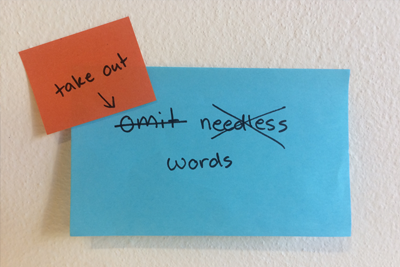 take out
omit needless
words